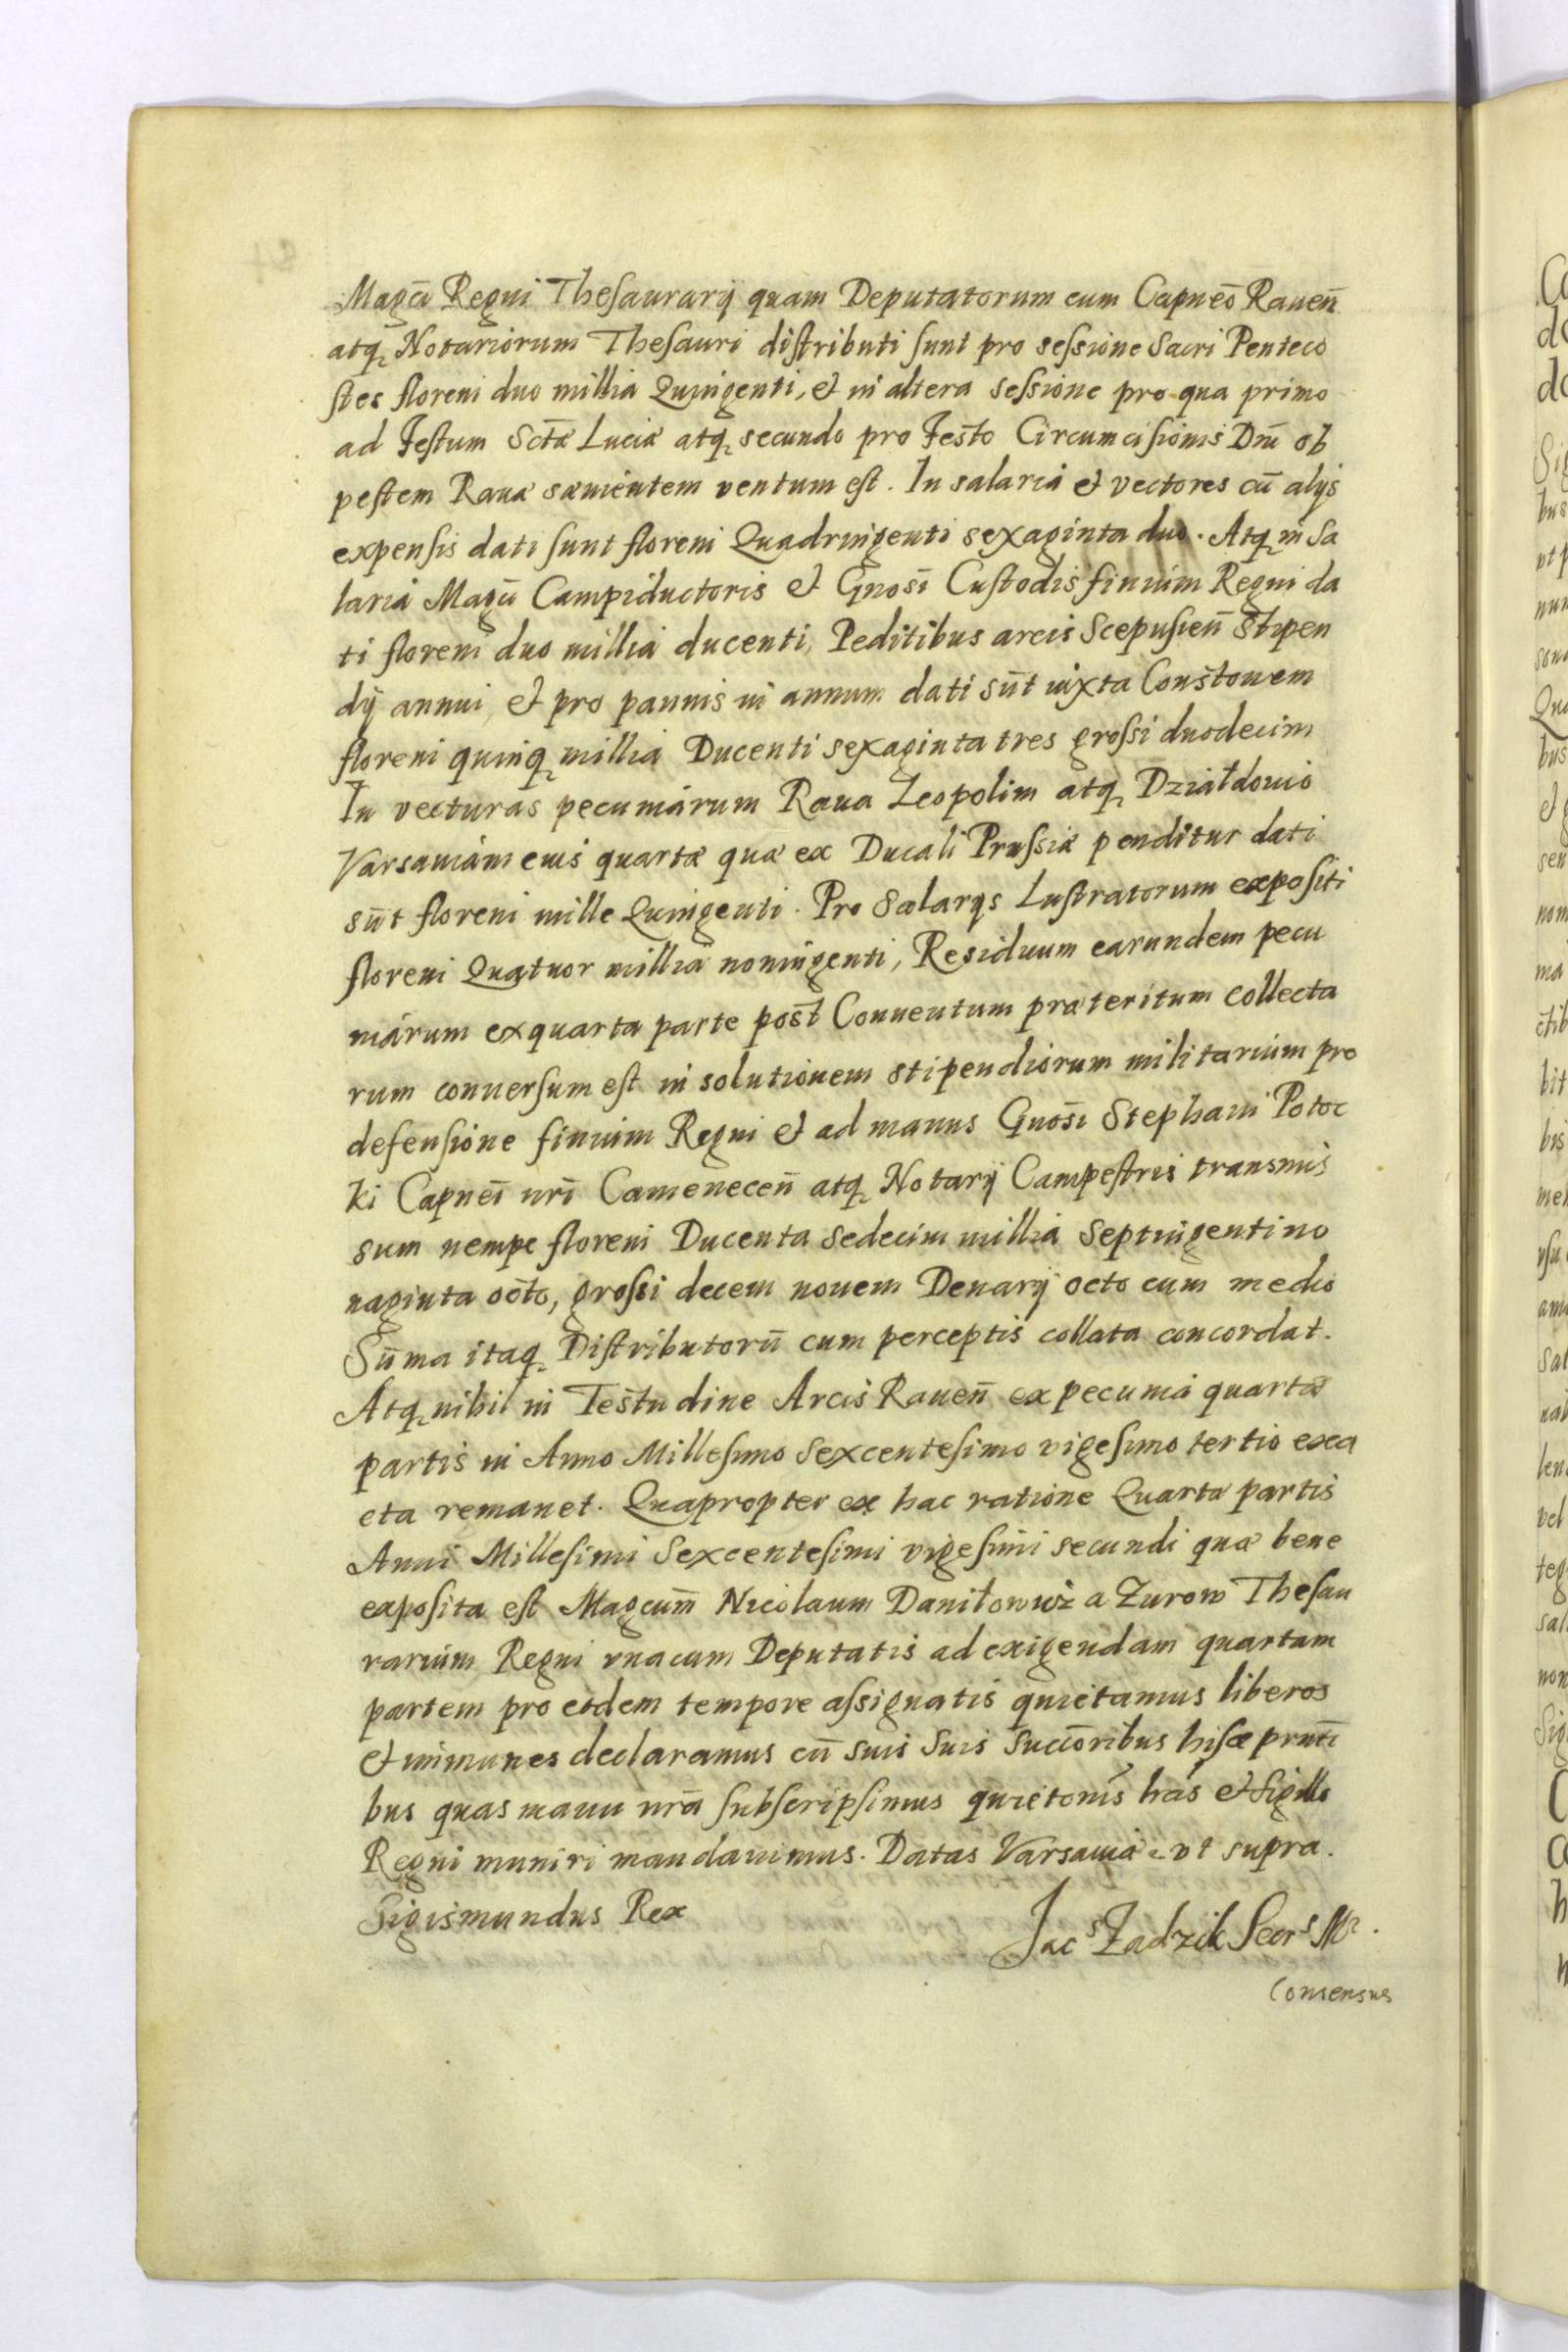 Magcī Regni Thesaurarij quam Deputatorum cum Capneō Rauen̄
atq₂ Notariorum Thesauri distributi sunt pro sessione Sacri Penteco
stes floreni duo millia Quingenti, et in altera sessione pro qua primo
ad Festum Sctæ Luciæ atq₂ secundo pro Festo Circumcisionis Dnī ob
pestem Rauæ sæuientem ventum est. In salaria et vectores cū alijs
expensis dati sunt floreni Quadringenti sexaginta duo. Atq₂ in Sa
laria Magcī Campiductoris et Gnosī Custodis finium Regni da
ti floreni duo millia ducenti, Peditibus arcis Scepusien̄ Stipen
dij annui, et pro pannis in annum dati sūt iuxta Constōnem
floreni quinq₂ millia Ducenti sexaginta tres grossi duodecim
In vecturas pecuniarum Raua Leopolim atq₂ Działdouio
Varsauiam eius quartæ quæ ex Ducali Prussiæ penditur dati
sūt floreni mille Quingenti. Pro Salarijs Lustratorum expositi
floreni Quatuor millia noningenti, Residuum earundem pecu
niarum ex quarta parte post Conuentum præteritum collecta
rum conuersum est in solutionem stipendiorum militarium pro
defensione finium Regni et ad manus Gnosī Stephani Potoc
ki Capneī nrī Camenecen̄ atq₂ Notarij Campestris transmis
sum nempe floreni Ducenta sedecim millia Septingenti no
naginta octo, grossi decem nouem Denarij octo cum medio
Sūma itaq₂ Distributorū cum perceptis collata concordat.
Atq₂ nihil in Testudine Arcis Rauen̄ ex pecunia quartæ
partis in Anno Millesimo Sexcentesimo vigesimo tertio exa
cta remanet. Quapropter ex hac ratione Quartæ partis
Anni Millesimi Sexcentesimi vigesimi secundi quæ bene
exposita est Magcum̄ Nicolaum Daniłowicz a Zurow Thesau
rarium Regni vnacum Deputatis ad exigendam quartam
partem pro eodem tempore assignatis quietamus liberos
et immunes declaramus cū suis Suis Succōribus hisce prntī
bus quas manu nrā subscripsimus quietonīs hās et sigillo
Regni muniri mandauimus. Datas Varsauiæ vt supra.
Sigismundus Rex
Jacˢ Zadzik Secrˢ Mʳ.
Consensus